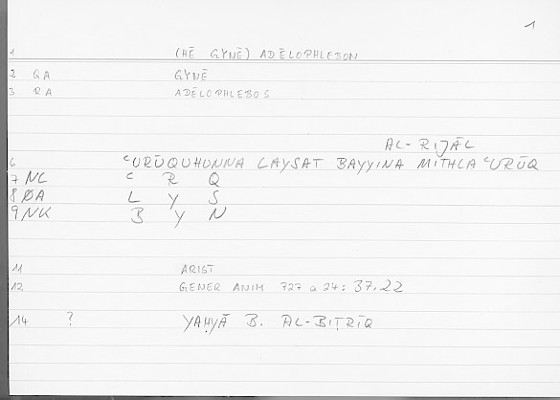 1
1 (HĒ GYNĒ) ADĒLOPHLEBON
2 QA GYNĒ
3 RA ADĒLOPHLEBOS
AL-RIJĀL
6 ʿURŪQUHUNNA LAYSAT BAYYINA MITHLA ʿURŪQ
7 NL ʿ R Q
8 ØA L Y S
9 NK B Y N
11 ARIST
12 GENER ANIM 727 a 24: 37.22
14 ? YAḤYĀ B. AL-BIṬRĪQ